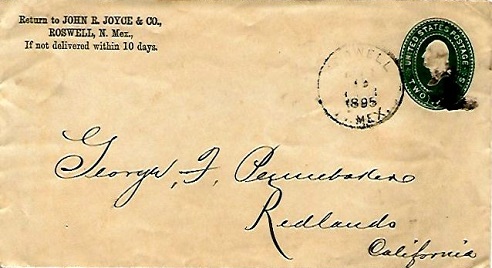 Return to JOHN E. JOYCE & CO.,
ROSWELL, N. Mex.,
If not delivered within 10 days.
UNITED STATES POSTAGE
TWO
ROSWELL
1895
MEX.
George F. Pennebaker
Redlands
California